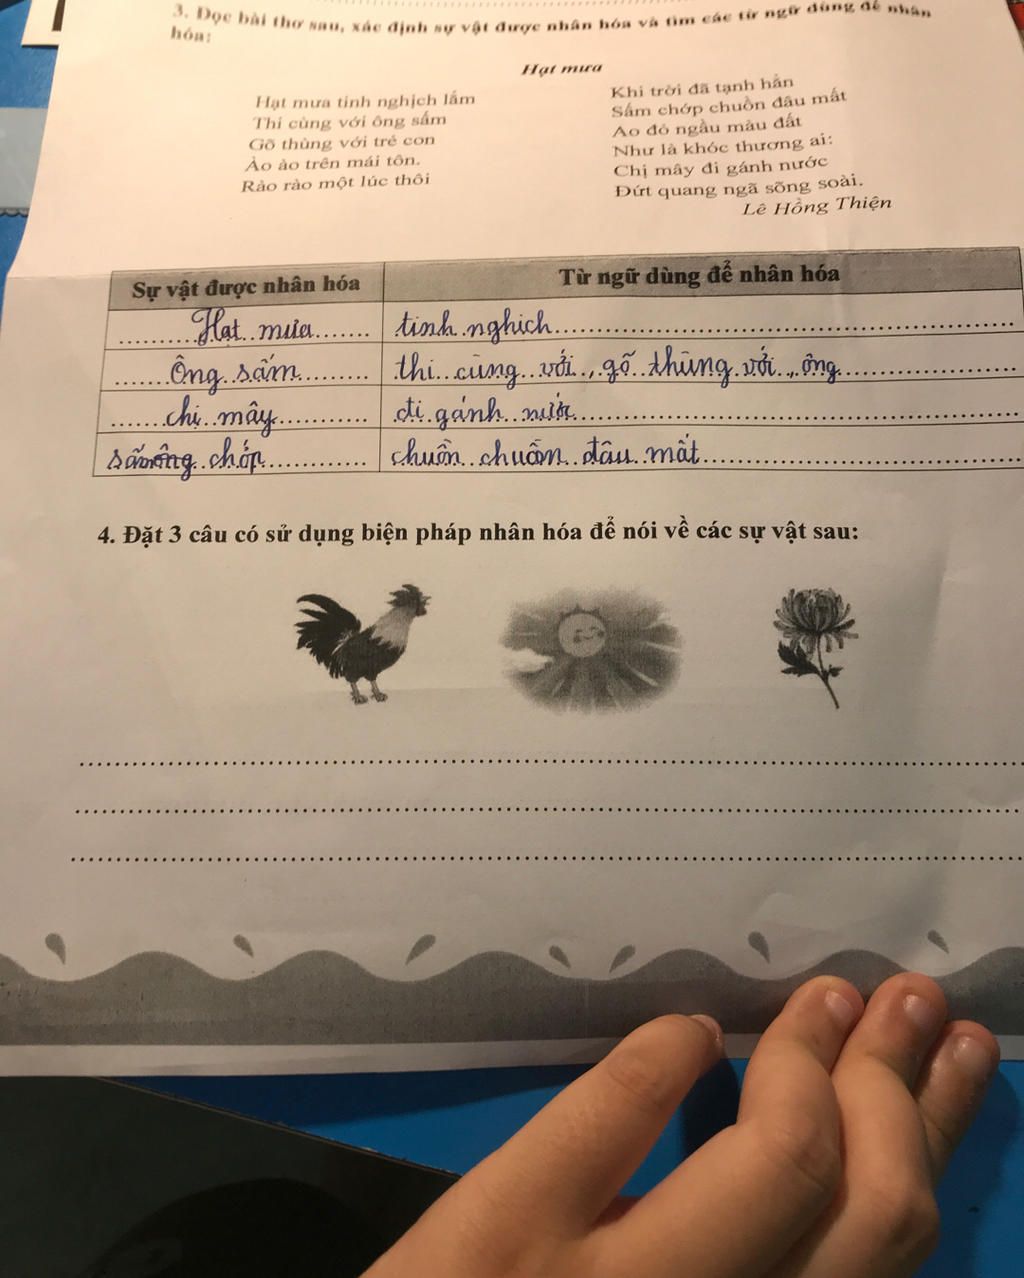 3. Đọc bài thơ sau, xác định sự vật được nhân hóa và tìm các từ ngữ dùng để nhân
hóa:
Hạt mưa
Hạt mưa tinh nghịch lắm
Thi cùng với ông sấm
Gõ thùng với trẻ con
Ào ào trên mái tôn.
Rào rào một lúc thôi
Khi trời đã tạnh hẳn
Sấm chớp chuồn đâu mất
Ao đỏ ngầu màu đất
Như là khóc thương ai:
Chị mây đi gánh nước
Đứt quang ngã sõng soài.
Lê Hồng Thiện
Sự vật được nhân hóa Từ ngữ dùng để nhân hóa
Hạt mưa tinh nghịch
Ông sấm thi cùng với, gõ thùng với, ông
chị mây đi gánh nước
chớp chuồn chuồn đâu mất
4. Đặt 3 câu có sử dụng biện pháp nhân hóa để nói về các sự vật sau: